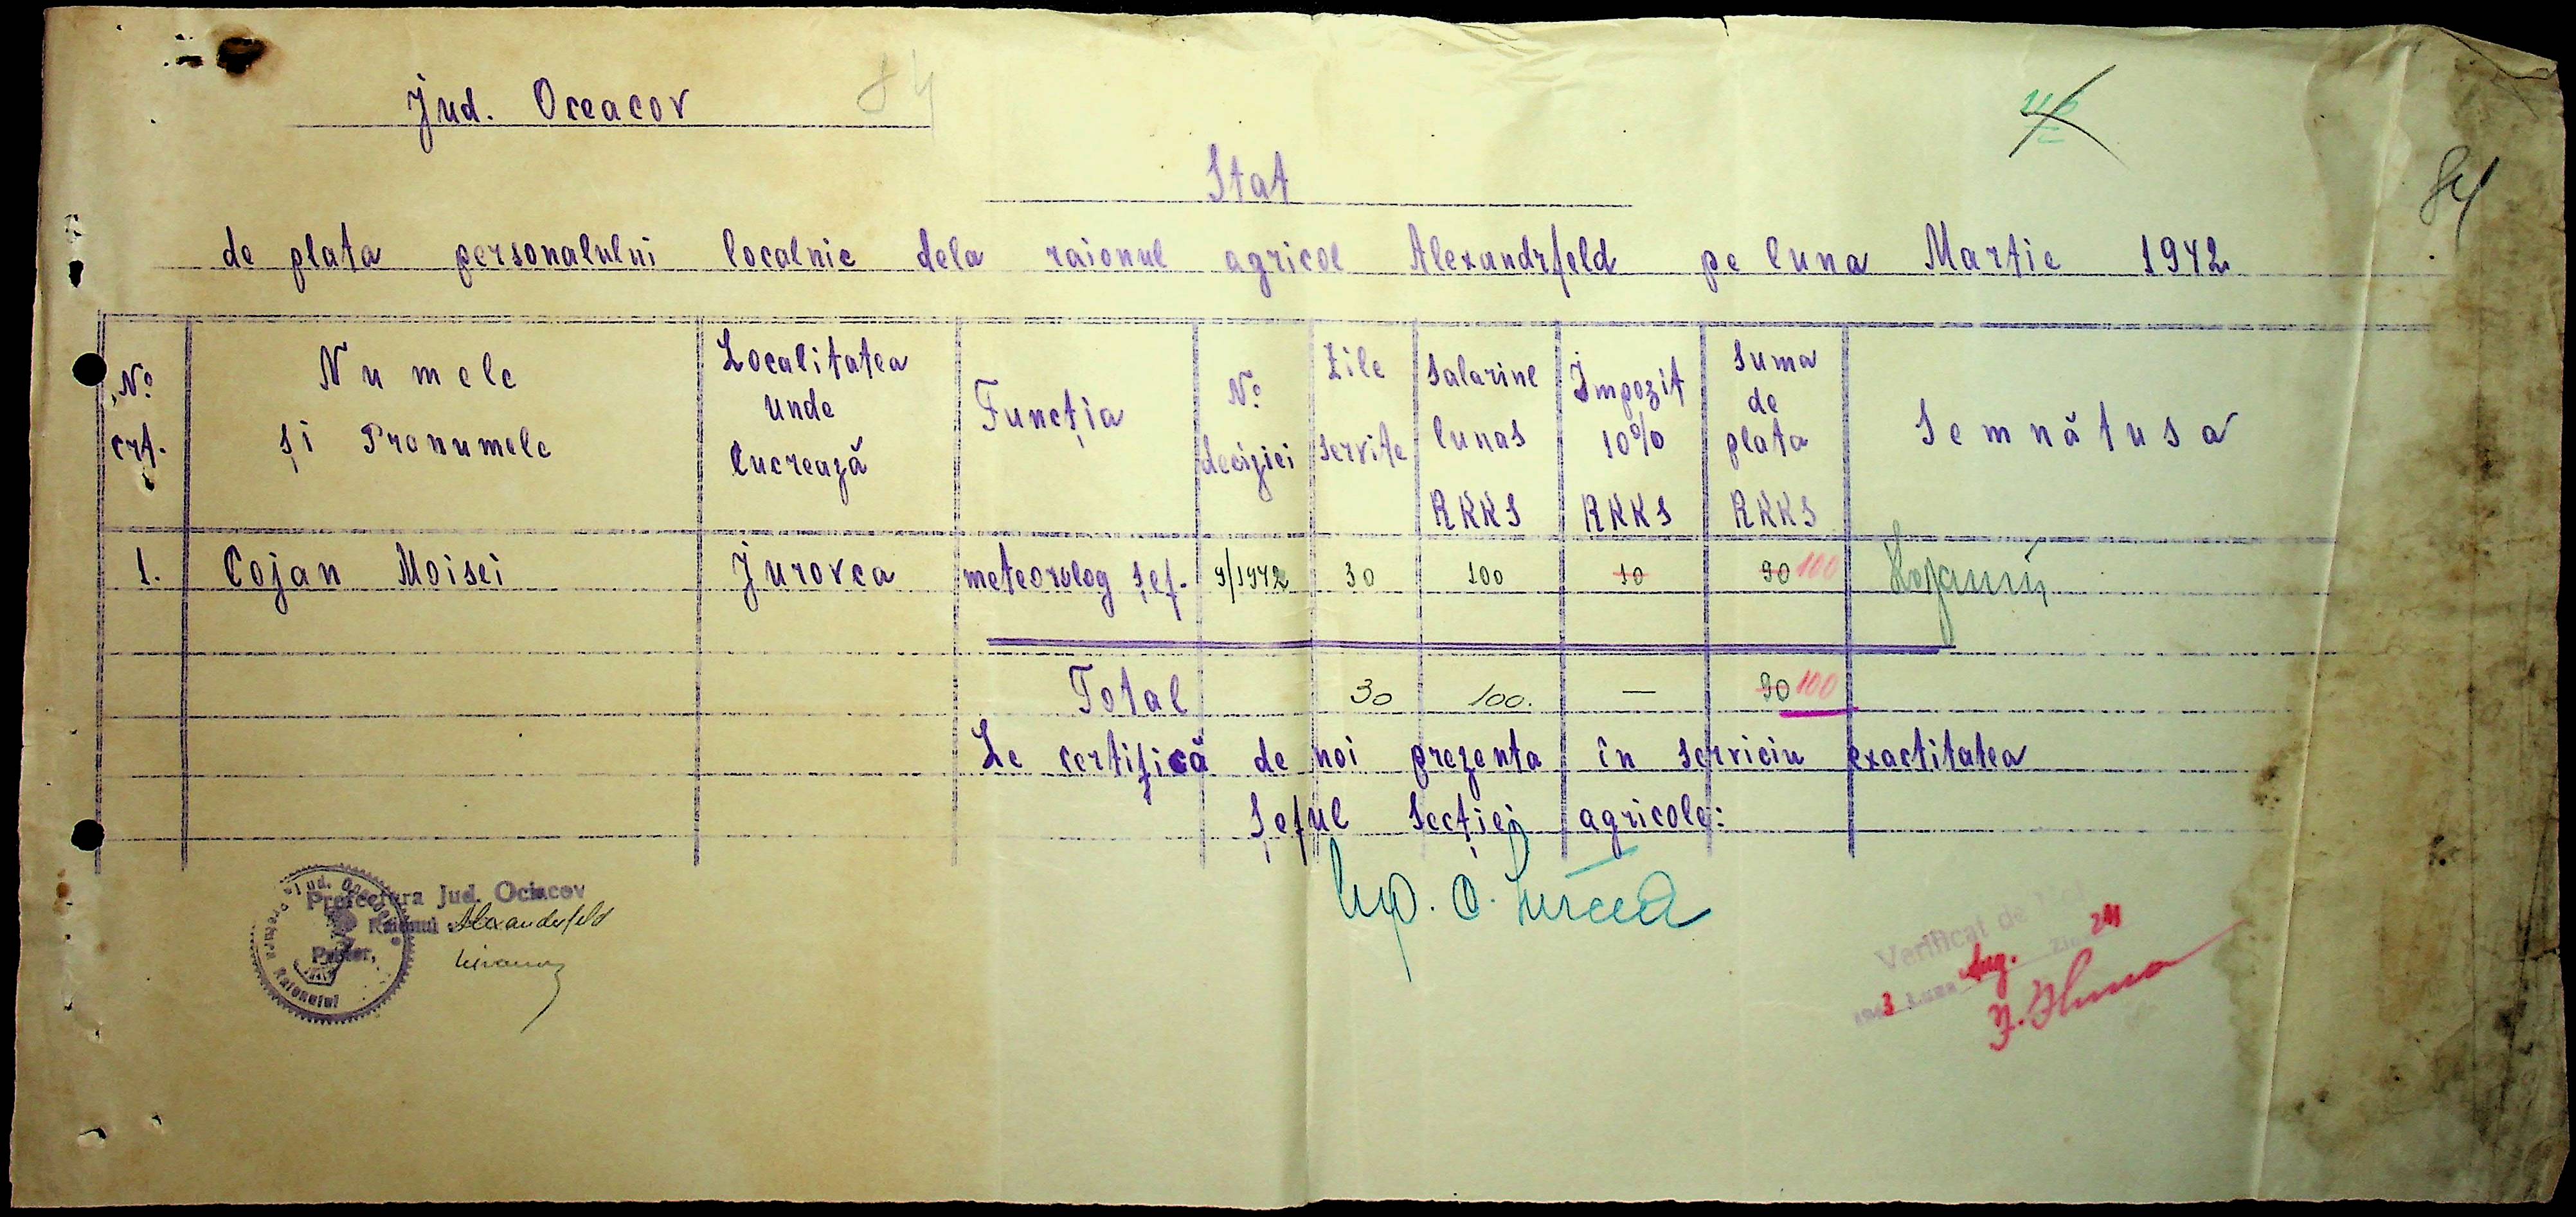 Jud. Oceacov
84
84
Stat
de plata personalului localnic dela raionul agricol Alexandrfeld pe luna Martie 1942
No crt.
Numele și Pronumele
Localitatea unde lucrează
Funcția
No deciziei
Zile servite
Salariul lunar RKKS
Impozit 10% RKKS
Suma de plata RKKS
Semnătura
1. Cojan Moisei Jurovca meteorolog șef. 9/1942 30 100 10 90 100
Total 30 100. — 90 100
Se certifică de noi prezenta în serviciu exactitatea
Șeful Secției agricole:
Prefectura Jud. Ociacov
Raionul Alexanderfeld
Pretor,
Pretura Raionului
Verificat de Noi
1943 Luna Aug. Ziua 24